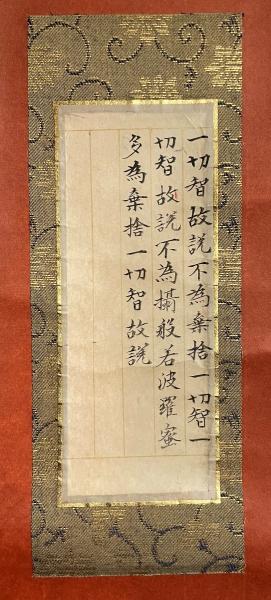 一切智故說不為棄捨一切智一
切智故說不為攝般若波羅蜜
多為棄捨一切智故說